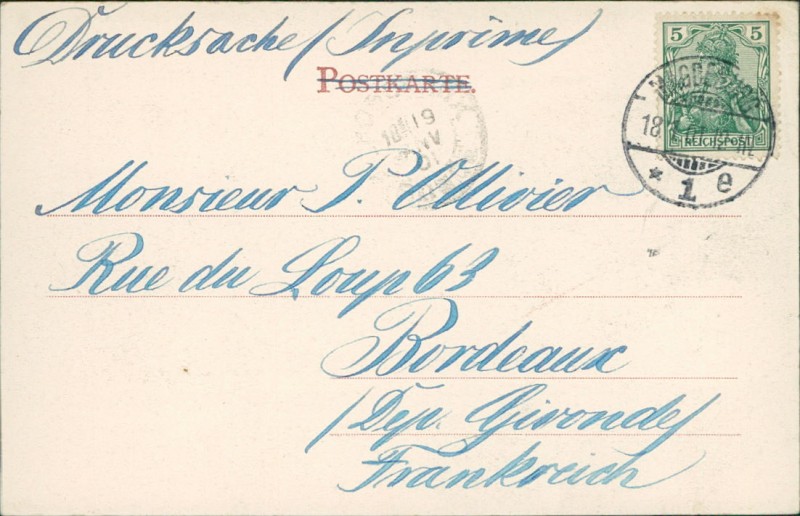 Drucksache (Inprime)
POSTKARTE.
5 5
REICHSPOST
MAGDEBURG
18
* 1 e
19
Monsieur P. Ollivier
Rue du Loup 63
Bordeaux
(Dep. Gironde)
Frankreich